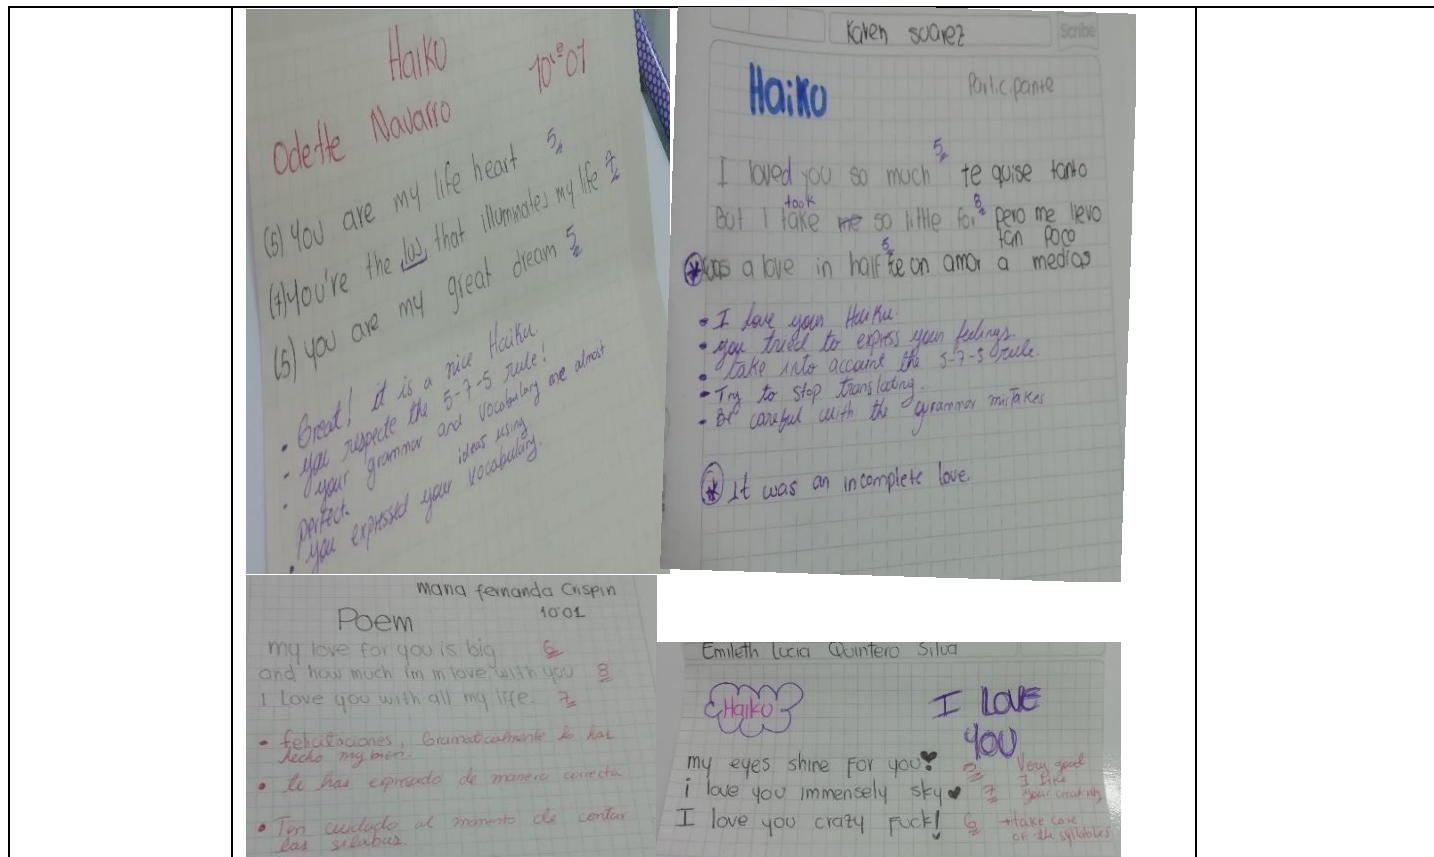 Haiku
10°01
Odette Navarro
(5) You are my life heart 5
(7) You're the lus that illuminates my life 7
(5) you are my great dream 5
• Great! it is a nice Haiku.
• you respecte the 5-7-5 rule!
• your grammar and vocabulary are almost perfect.
• you expressed your ideas using vocabulary.
Karen suarez
Scribe
Haiku
Participante
I loved you so much 5 te quise tanto
But I take me so little for 8 pero me llevo
took
tan poco
was a love in half 5 un amor a medias
• I love your Haiku.
• you tried to express your feelings.
• take into account the 5-7-5 rule.
• Try to stop translating.
• Be careful with the grammar mistakes
* It was an incomplete love.
Maria fernanda Crispin
10:01
Poem
my love for you is big 6
and how much im in love with you 8
I Love you with all my life. 7
• felicitaciones, Gramaticalmente lo has
hecho my bien.
• te has expresado de manera correcta
• Ten cuidado al momento de contar
las silabas.
Emileth Lucia Quintero Silva
Haiku
I LOVE
YOU
my eyes shine for you! 5 Very good
i love you immensely sky 7 I like your creativity
I love you crazy Fuck! 6 → take care
of the syllables